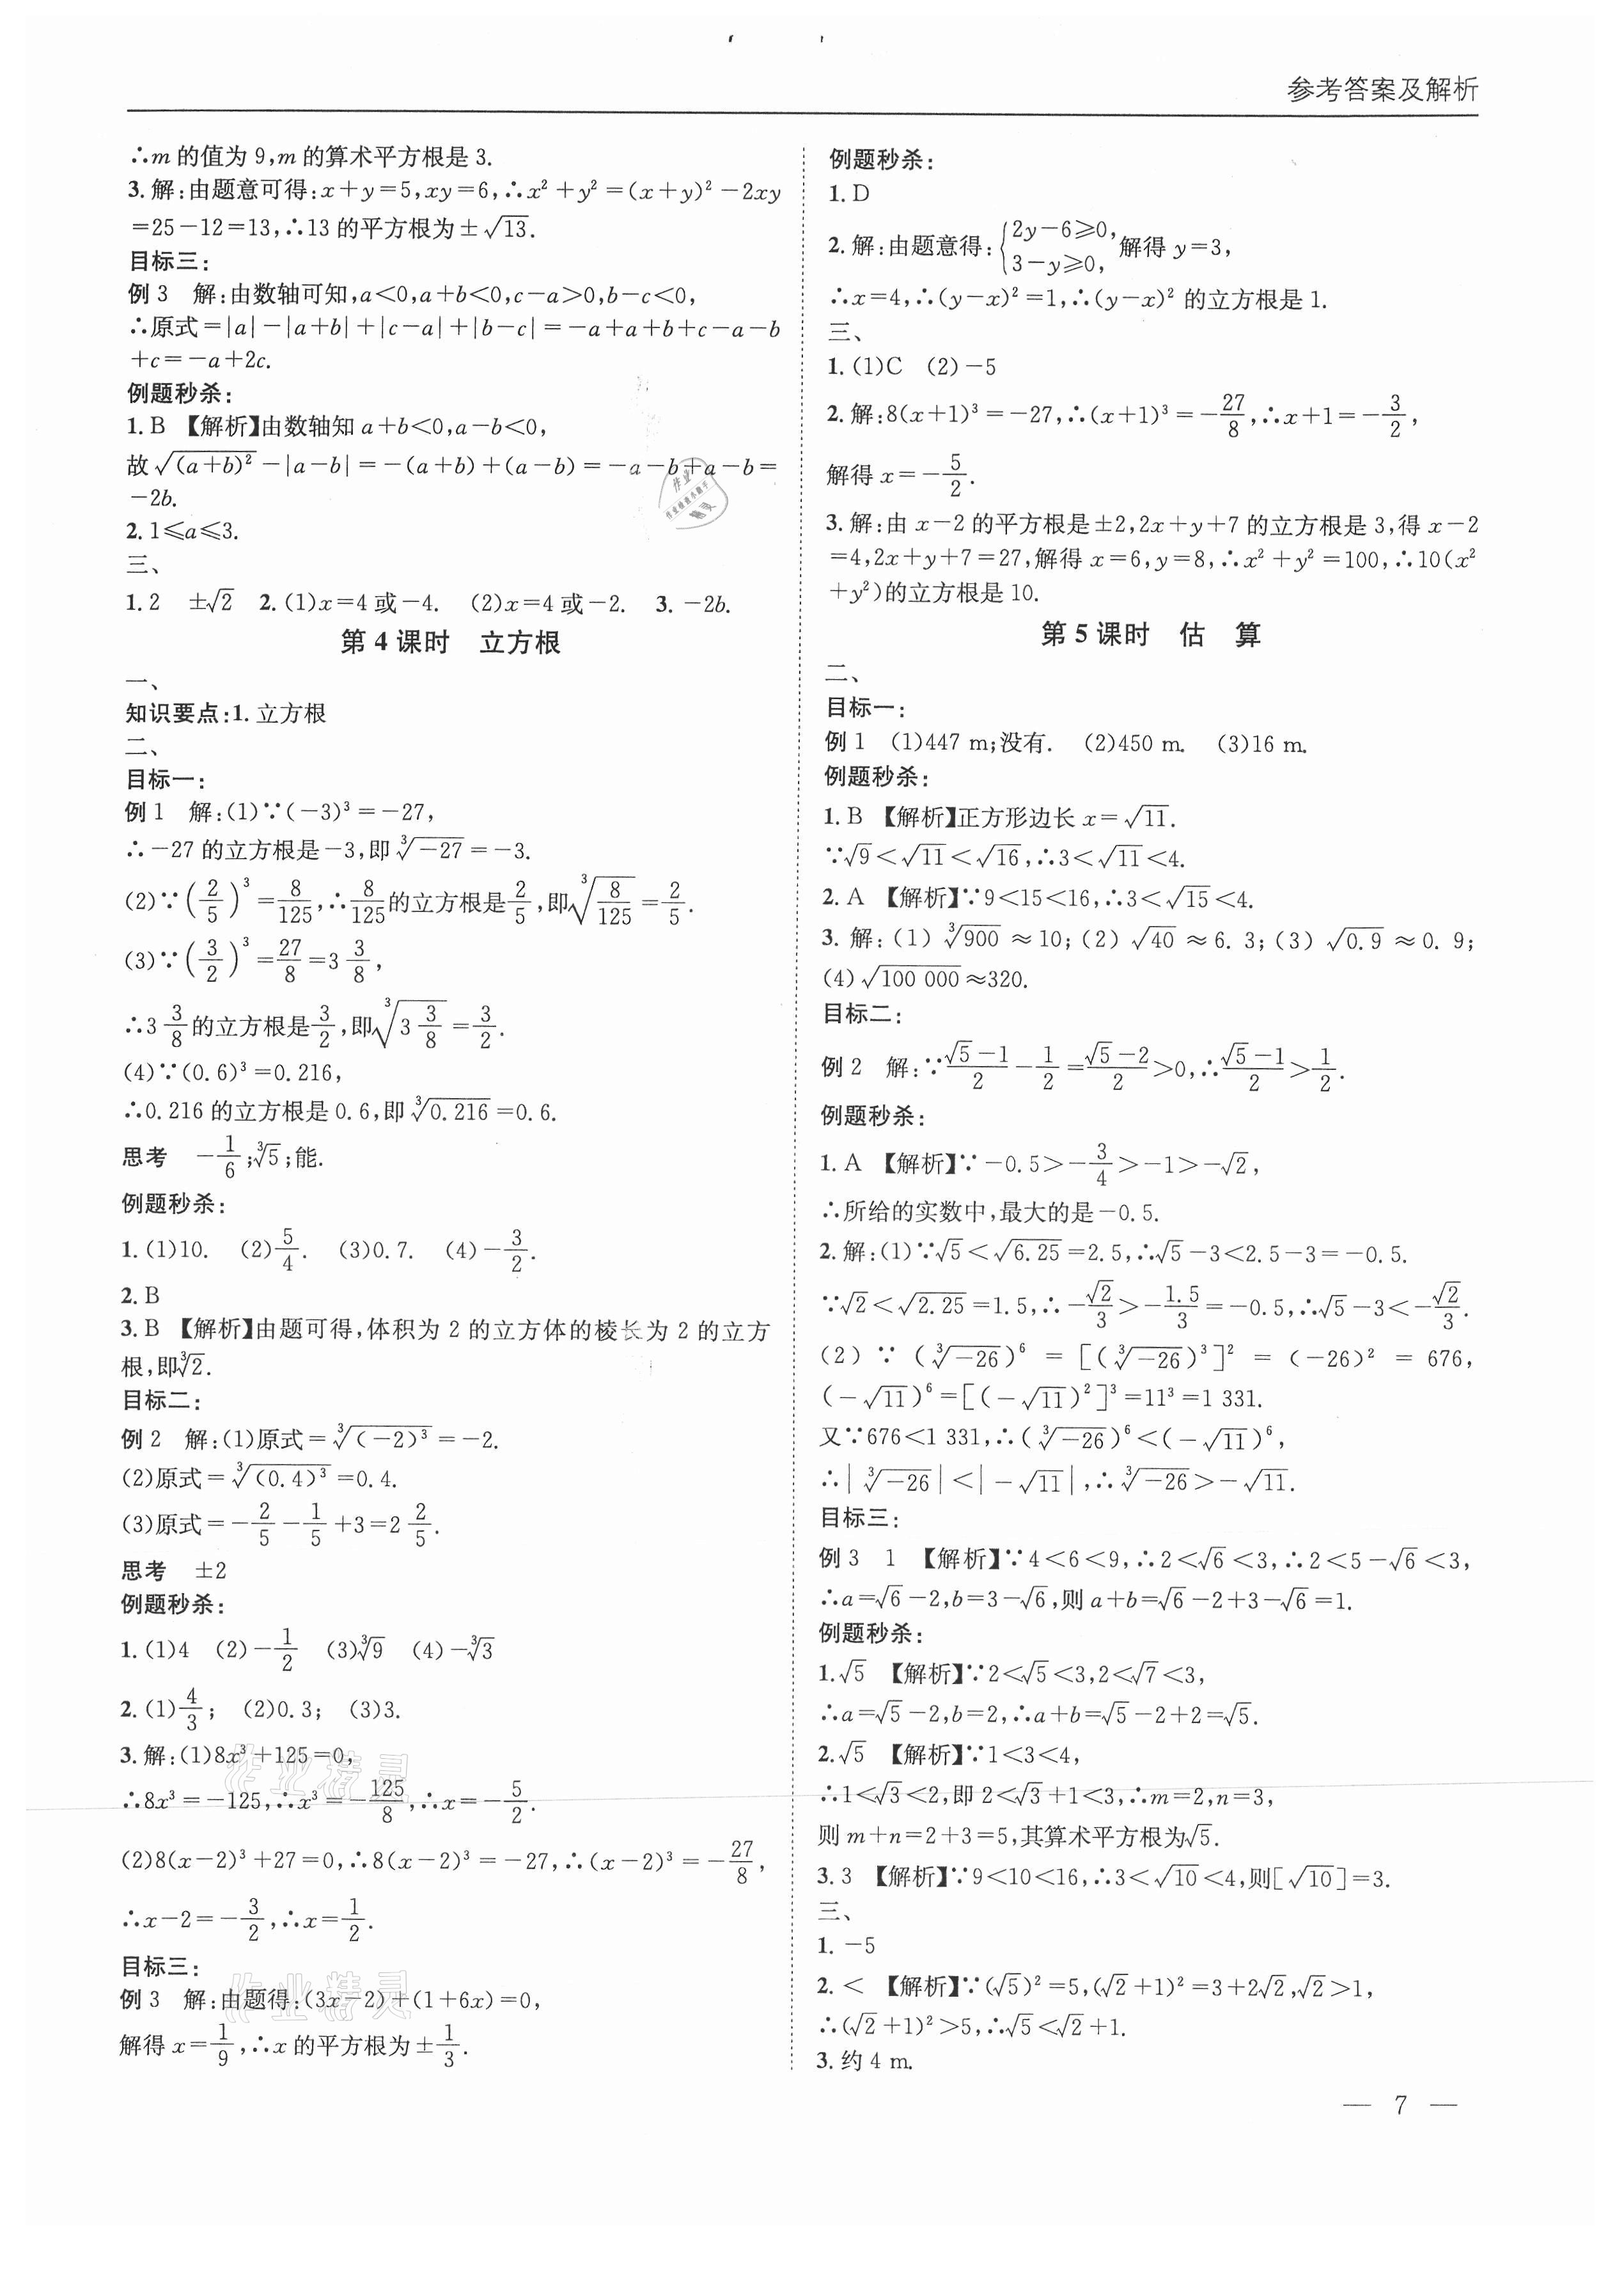 参考答案及解析
∴m 的值为 9,m 的算术平方根是 3.
3.解:由题意可得:x+y=5,xy=6,∴x²+y²=(x+y)²-2xy
=25-12=13,∴13 的平方根为±√13.
目标三:
例 3 解:由数轴可知,a<0,a+b<0,c-a>0,b-c<0,
∴原式=|a|-|a+b|+|c-a|+|b-c|=-a+a+b+c-a-b
+c=-a+2c.
例题秒杀:
1.B 【解析】由数轴知 a+b<0,a-b<0,
故√(a+b)²-|a-b|=-(a+b)+(a-b)=-a-b+a-b=
-2b.
2.1≤a≤3.
三、
1.2 ±√2 2.(1)x=4 或-4. (2)x=4 或-2. 3.-2b.
第 4 课时 立方根
一、
知识要点:1.立方根
二、
目标一:
例 1 解:(1)∵(-3)³=-27,
∴-27 的立方根是-3,即∛-27=-3.
(2)∵(2/5)³=8/125,∴8/125的立方根是2/5,即∛(8/125)=2/5.
(3)∵(3/2)³=27/8=3 3/8,
∴3 3/8的立方根是3/2,即∛(3 3/8)=3/2.
(4)∵(0.6)³=0.216,
∴0.216 的立方根是 0.6,即∛0.216=0.6.
思考 -1/6;∛5;能.
例题秒杀:
1.(1)10. (2)5/4. (3)0.7. (4)-3/2.
2.B
3.B 【解析】由题可得,体积为 2 的立方体的棱长为 2 的立方
根,即∛2.
目标二:
例 2 解:(1)原式=∛(-2)³=-2.
(2)原式=∛(0.4)³=0.4.
(3)原式=-2/5-1/5+3=2 2/5.
思考 ±2
例题秒杀:
1.(1)4 (2)-1/2 (3)∛9 (4)-∛3
2.(1)4/3; (2)0.3; (3)3.
3.解:(1)8x³+125=0,
∴8x³=-125,∴x³=-125/8,∴x=-5/2.
(2)8(x-2)³+27=0,∴8(x-2)³=-27,∴(x-2)³=-27/8,
∴x-2=-3/2,∴x=1/2.
目标三:
例 3 解:由题得:(3x-2)+(1+6x)=0,
解得 x=1/9,∴x 的平方根为±1/3.
例题秒杀:
1.D
2.解:由题意得:{2y-6≥0,
3-y≥0,解得 y=3,
∴x=4,∴(y-x)²=1,∴(y-x)² 的立方根是 1.
三、
1.(1)C (2)-5
2.解:8(x+1)³=-27,∴(x+1)³=-27/8,∴x+1=-3/2,
解得 x=-5/2.
3.解:由 x-2 的平方根是±2,2x+y+7 的立方根是 3,得 x-2
=4,2x+y+7=27,解得 x=6,y=8,∴x²+y²=100,∴10(x²
+y²)的立方根是 10.
第 5 课时 估 算
二、
目标一:
例 1 (1)447 m;没有. (2)450 m. (3)16 m.
例题秒杀:
1.B 【解析】正方形边长 x=√11.
∵√9<√11<√16,∴3<√11<4.
2.A 【解析】∵9<15<16,∴3<√15<4.
3.解:(1)∛900≈10;(2)√40≈6.3;(3)√0.9≈0.9;
(4)√100 000≈320.
目标二:
例 2 解:∵(√5-1)/2-1/2=(√5-2)/2>0,∴(√5-1)/2>1/2.
例题秒杀:
1.A 【解析】∵-0.5>-3/4>-1>-√2,
∴所给的实数中,最大的是-0.5.
2.解:(1)∵√5<√6.25=2.5,∴√5-3<2.5-3=-0.5.
∵√2<√2.25=1.5,∴-√2/3>-1.5/3=-0.5,∴√5-3<-√2/3.
(2)∵(∛-26)⁶=[(∛-26)³]²=(-26)²=676,
(-√11)⁶=[(-√11)²]³=11³=1 331.
又∵676<1 331,∴(∛-26)⁶<(-√11)⁶,
∴|∛-26|<|-√11|,∴∛-26>-√11.
目标三:
例 3 1 【解析】∵4<6<9,∴2<√6<3,∴2<5-√6<3,
∴a=√6-2,b=3-√6,则 a+b=√6-2+3-√6=1.
例题秒杀:
1.√5 【解析】∵2<√5<3,2<√7<3,
∴a=√5-2,b=2,∴a+b=√5-2+2=√5.
2.√5 【解析】∵1<3<4,
∴1<√3<2,即 2<√3+1<3,∴m=2,n=3,
则 m+n=2+3=5,其算术平方根为√5.
3.3 【解析】∵9<10<16,∴3<√10<4,则[√10]=3.
三、
1.-5
2.< 【解析】∵(√5)²=5,(√2+1)²=3+2√2,√2>1,
∴(√2+1)²>5,∴√5<√2+1.
3.约 4 m.
— 7 —
作业精灵
作业精灵